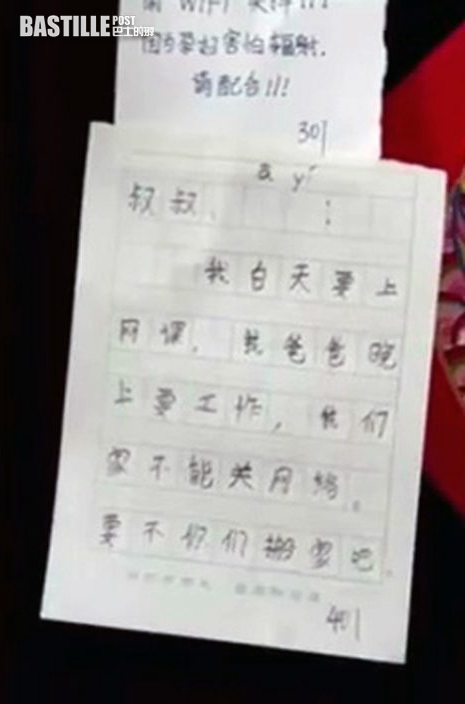 BASTILLE POST
巴士的報
WIFI 关掉!!!
因为孕妇害怕辐射.
请配合!!!
301
a yí
叔叔、:
我白天要上
网课,我爸爸晚
上要工作,我们
家不能关网络。
要不你们搬家吧.
401